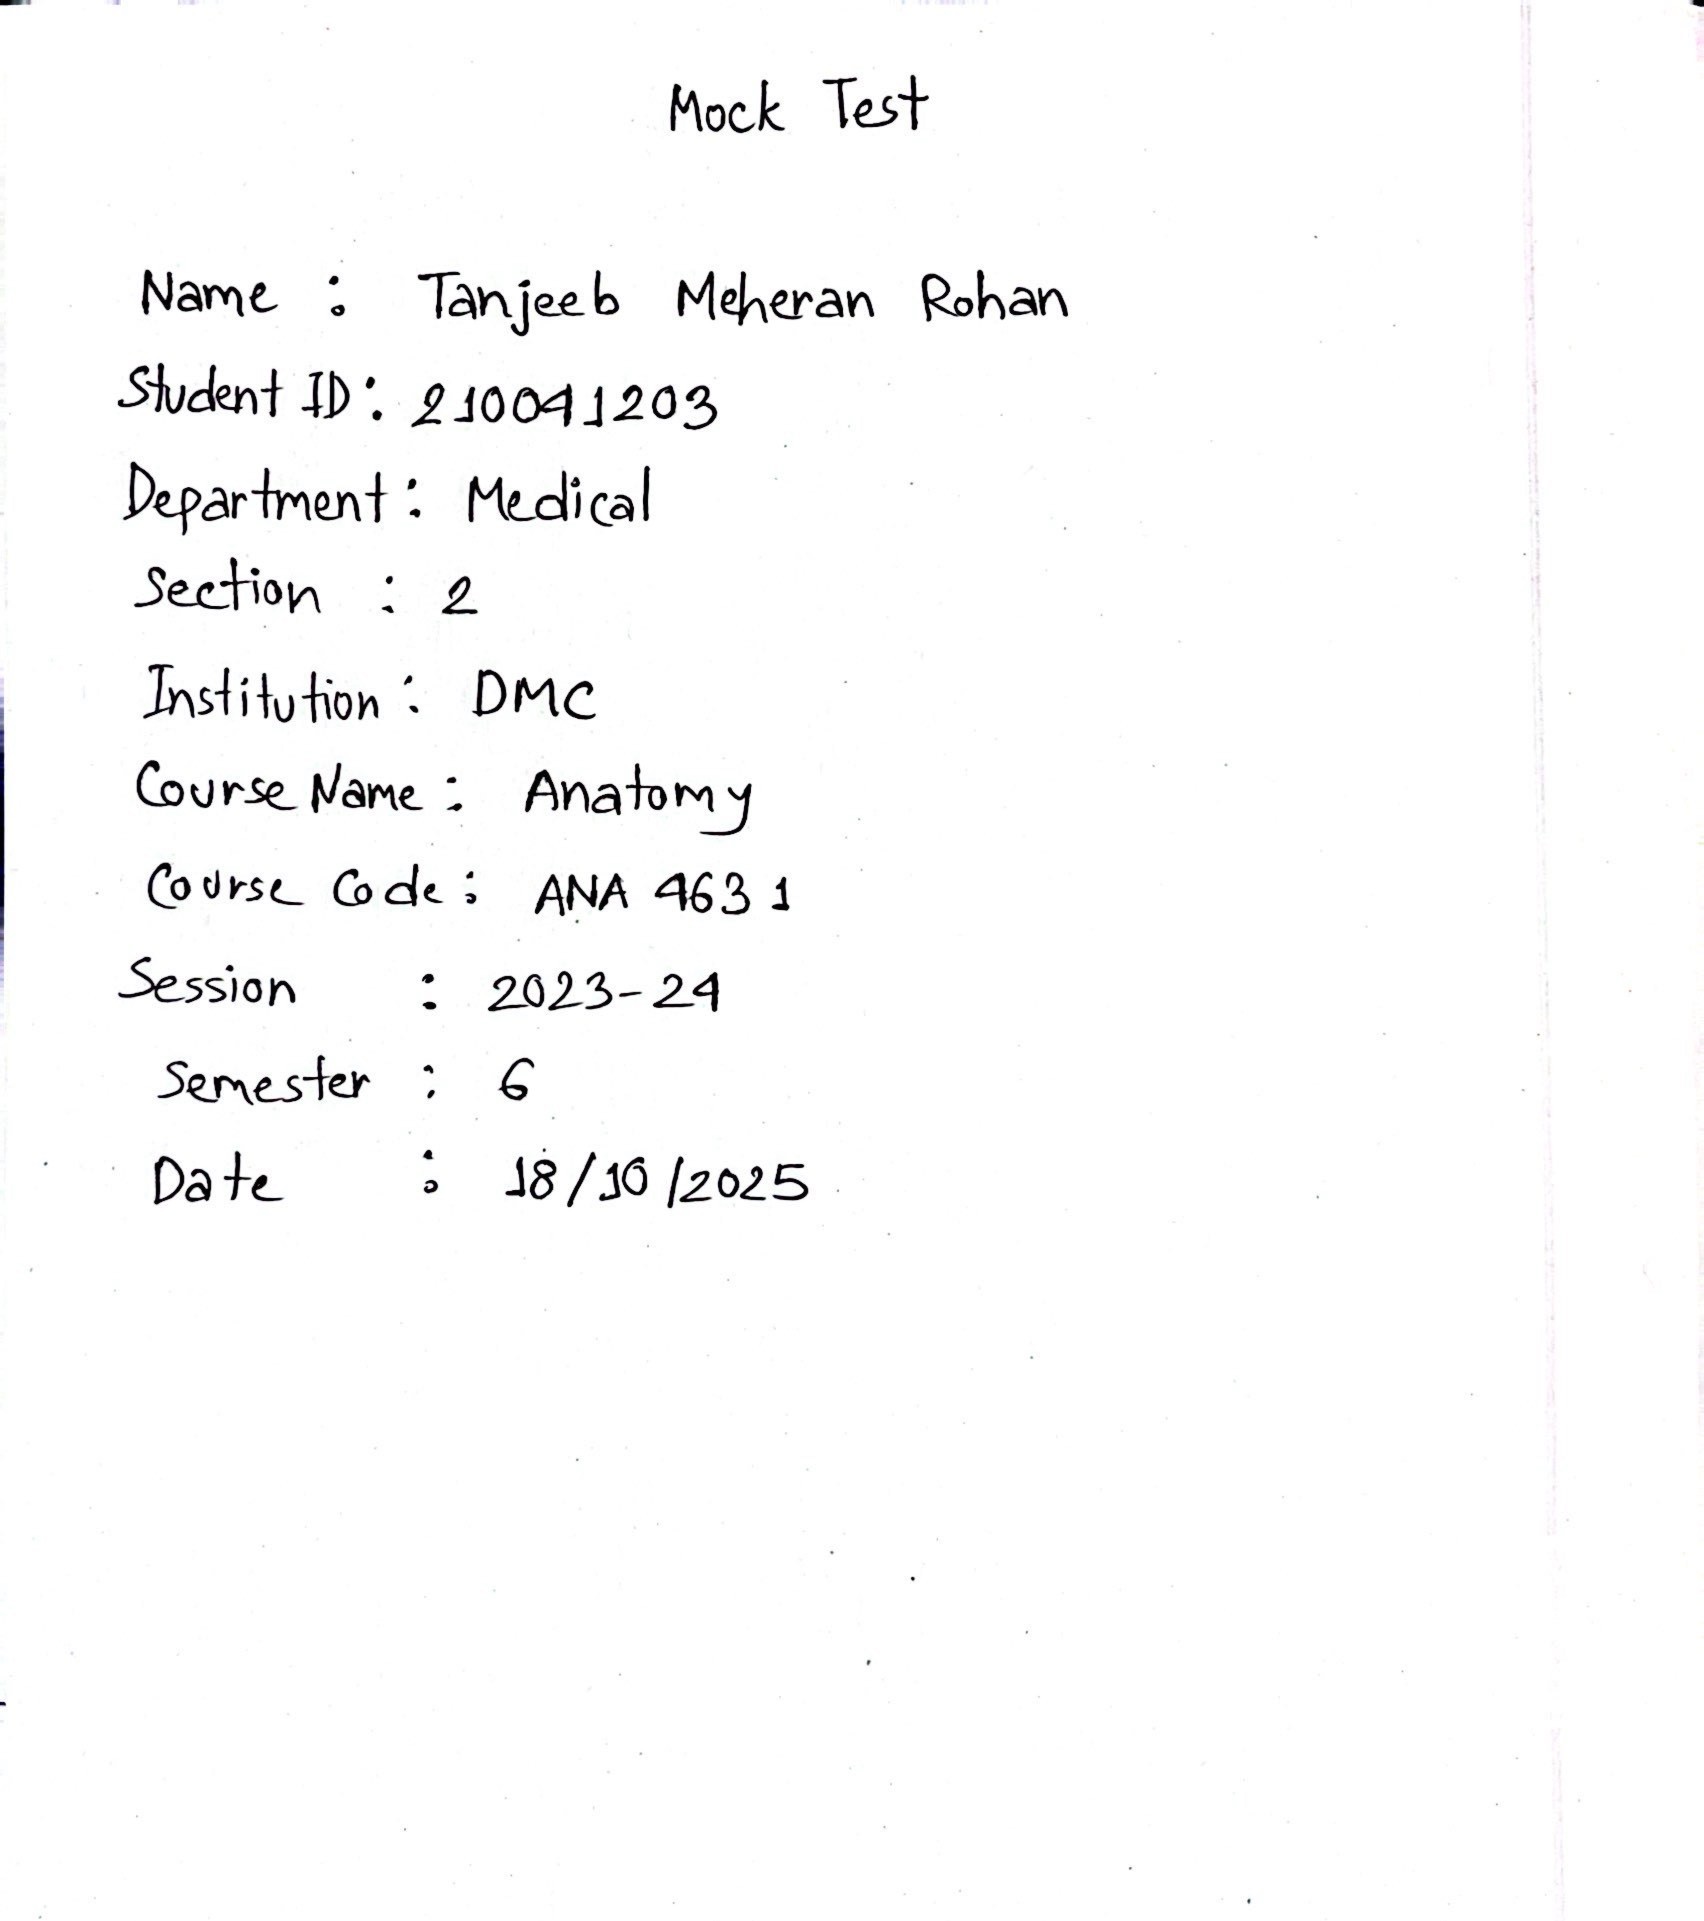 Mock Test
Name : Tanjeeb Meheran Rohan
Student ID : 210041203
Department : Medical
Section : 2
Institution : DMC
Course Name : Anatomy
Course Code : ANA 4631
Session : 2023-24
Semester : 6
Date : 18/10/2025